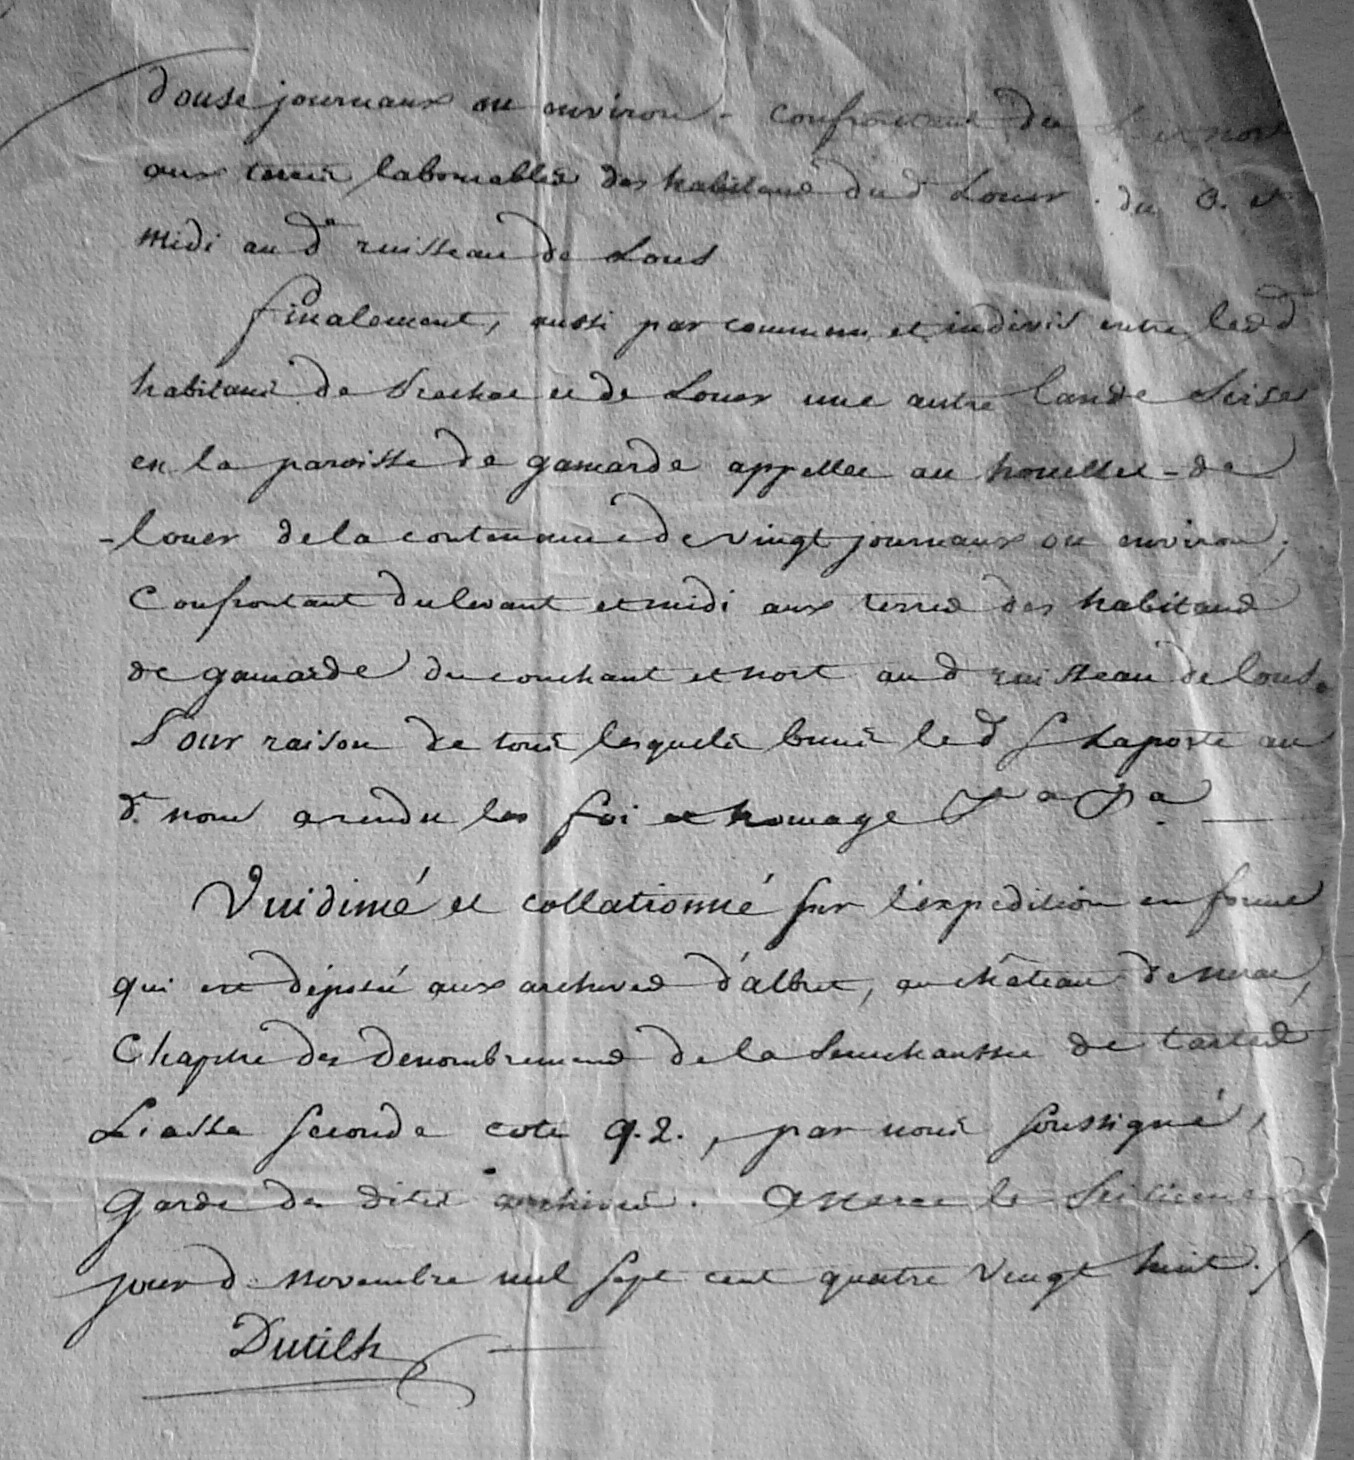 douse journaux ou environ. Confrontant du L et nort
aux terres labourables des habitans dud Louer. du C. et
midi au d. ruisseau de Lous
finalement, aussi par commun et indivis entre lesd
habitans de et de Louer une autre lande Scise
en la paroisse de gamarde appellée au houillet - de
- louer de la contenance de vingt journaux ou environ;
Confrontant du levant et midi aux terres des habitans
de gamarde du couchant et nort aud ruisseau de lous.
Pour raison de tous lesquels biens led S Laporte au
d. nom a rendu les foi et homage
Vuidimé et collationné sur l'expedition en forme
qui est déposée aux archives d'albret, au château de nerac,
Chapitre des denombremens de la Senechaussée de tartas
Liasse seconde cote q.2., par nous soussigné,
Garde des dites archives. A Nerac le Seitieme
jour d. novembre mil sept cent quatre vingt huit./
Dutilh